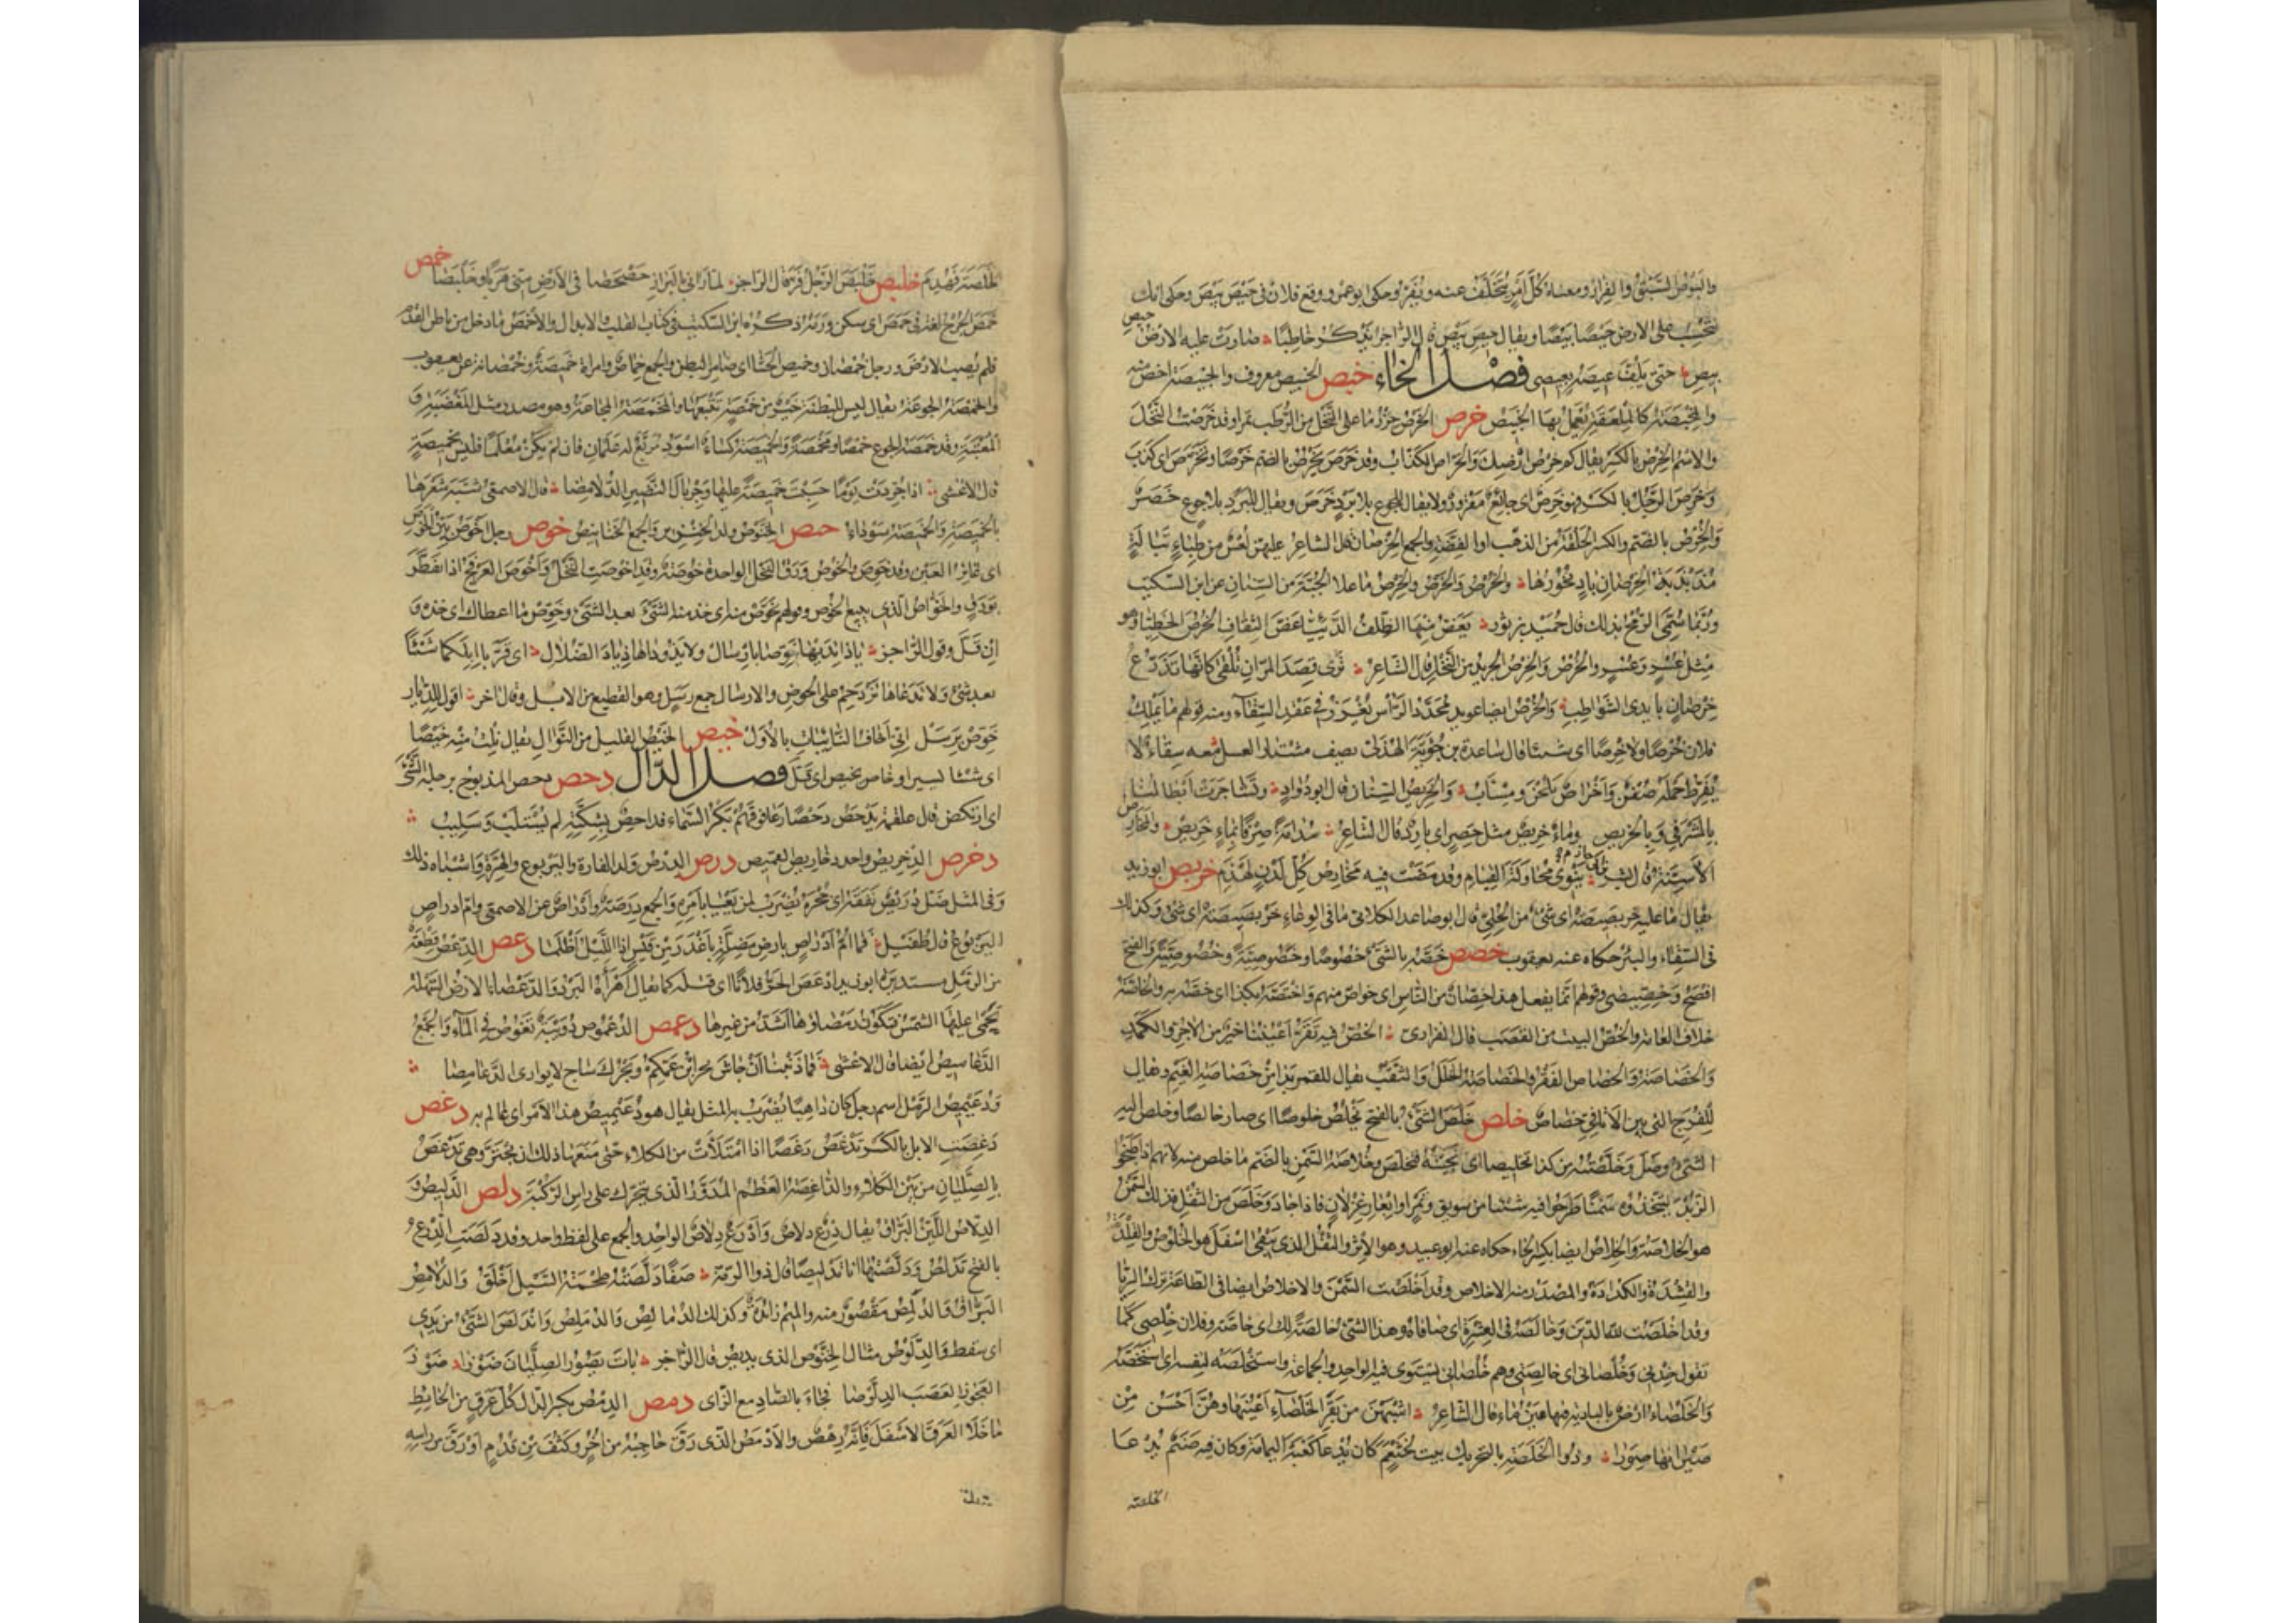 والبوص السبق والفرار ومعناه كل امر يتخلف عنه ويفر وحكى ابو عمرو وقع فلان في حيص بيص وحكى انك
تحسب على الارض حيصا بيصا ويقال حيص بيص قال الراجز يذكر خاطبا صارت عليه الارض حيص
بيص حتى يلف عيصه بعيصى فصل الخاء خبص الخبيص معروف والخبيصة اخص منه
والمخبصة كالملعقة يعمل بها الخبيص خرص الخرص حزر ما على النخل من الرطب تمرا وقد خرصت النخل
والاسم الخرص بالكسر يقال كم خرص ارضك والخراص الكذاب وقد خرص يخرص بالضم خرصا وتخرص اى كذب
وخرص الرجل بالكسر فهو خرص اى جائع مقرور ولا يقال للجوع بلا برد خرص ويقال للبرد بلا جوع خصر
والخرص بالضم والكسر الحلقة من الذهب او الفضة والجمع الخرصان قال الشاعر عليهن لعس من ظباء تبالة
مذبذبة الخرصان باد نحورها والخرص والخرص والخرص ما علا الجبة من السنان عن ابن السكيت
وربما سمى الرمح بذلك قال حميد بن ثور يعض منها الظلف الدئيا عض الثقاف الخرص الخطيا وهو
مثل عسر وعسر والخرص والخرص الجريد من النخل قال الشاعر ترى قصد المران تلقى كانها تذرع
خرصان بايدى الشواطب والخرص ايضا عويد محدد الراس يغرز في عقد السقاء ومنه قولهم ما يملك
فلان خرصا ولا خرصا اى شيئا قال ساعدة بن جوية الهذلى يصف مشتار العسل معه سقاء لا
يفرط حمله صفن واخراص يلحن ومسأب والخريص السنان قال ابو دواد وتشاجرت ابطالنا
بالمشرفي وبالخريص وماء خريص مثل خصر اى بارد قال الشاعر مدامة صرف بماء خريص والمخارص
الاسنة قال بشر ينوى محاولة القيام وقد مضت فيه مخارص كل لدن لهذم خربص ابو زيد
يقال ما عليه خربصيصة اى شئ من الحلى قال ابو صاعد الكلابى ما في الوعاء خربصيصة اى شئ وكذلك
في السقاء والبئر حكاه عنه يعقوب خصص خصه بالشئ خصوصا وخصوصية وخصوصية والفتح
افصح وخصيصى وقولهم انما يفعل هذا خصان من الناس اى خواص منهم واختصه بكذا اى خصه به والخاصة
خلاف العامة والخص البيت من القصب قال الفزارى الخص فيه تقر اعيننا خير من الاجر والكمد
والخصاصة والخصاص الفقر والخصاصة الخلل والثقب يقال للقمر بدا من خصاصة الغيم ويقال
للفرج التى بين الاثافي خصاص خلص خلص الشئ بالفتح يخلص خلوصا اى صار خالصا وخلص اليه
الشئ وصل وخلصته من كذا تخليصا اى نجيته فتخلص وخلاصة السمن بالضم ما خلص منه لانهم اذا طبخوا
الزبد ليتخذوه سمنا طرحوا فيه شيئا من سويق وتمر او ابعار غزلان فاذا جاد وخلص من الثفل فذلك السمن
هو الخلاصة والخلاص ايضا بكسر الخاء حكاه عنه ابو عبيد وهو الاثر والثفل الذى يبقى اسفل هو الخلوص والقلدة
والقشدة والكدادة والمصدر منه الاخلاص وقد اخلصت السمن والاخلاص ايضا في الطاعة ترك الريا
وقد اخلصت لله الدين وخالصه في العشرة اى صافاه وهذا الشئ خالصة لك اى خاصة وفلان خلصى كما
تقول خدنى وخلصانى اى خالصتى وهم خلصانى يستوى فيه الواحد والجماعة واستخلصه لنفسه اى استخصه
والخلصاء ارض بالبادية فيها عين ماء قال الشاعر اشبهن من بقر الخلصاء اعينها وهن احسن من
صيرانها صورا وذو الخلصة بالتحريك بيت لخثعم كان يدعا كعبة اليمامة وكان فيه صنم يدعا
الخلصة
الخلصة فهدم خلبص خلبص الرجل فر قال الراجز لما رانى بالبراز حصحصا في الارض منى هربا وخلبصا خمص
خمص الجرح لغة في حمص اى سكن ورمه ذكره ابن السكيت في كتاب القلب والابدال والاخمص ما دخل من باطن القدم
فلم يصب الارض ورجل خمصان وخميص الحشا اى ضامر البطن والجمع خماص وامراة خميصة وخمصانة عن يعقوب
والخمصة الجوعة يقال ليس للبطنة خير من خمصة تتبعها والمخمصة المجاعة وهو مصدر مثل المغضبة و
المعتبة وقد خمصه الجوع خمصا ومخمصة والخميصة كساء اسود مربع له علمان فان لم يكن معلما فليس بخميصة
قال الاعشى اذا جردت يوما حسبت خميصة عليها وجريال النضير الدلامصا قال الاصمعى شبه شعرها
بالخميصة والخميصة سوداء خنص الخنوص ولد الخنزير والجمع الخنانيص خوص رجل اخوص بين الخوص
اى غائر العين وقد خوص والخوص ورق النخل الواحدة خوصة وقد اخوصت النخل واخوص العرفج اذا تفطر
بورق والخواص الذى يبيع الخوص وقولهم تخوص منه اى خذ منه الشئ بعد الشئ وخوص ما اعطاك اى خذه و
ان قل وقول الراجز يا ذائديها خوصا بارسال ولا تذوداها ذياد الضلال اى قربا ابلكما شيئا
بعد شئ ولا تدعاها تزدحم على الحوض والارسال جمع رسل وهو القطيع من الابل وقال اخر اقول للذائد
خوص برسل انى اخاف النائبات بالاول خيص الخيص القليل من النوال يقال نلت منه خيصا
اى شيئا يسيرا وخاص يخيص اى قل فصل الدال دحص دحص المذبوح برجله الشئ
اى ارتكض قال علقمة يدحص دحصا رغا فوقهم بكر السماء فداحص بشكته لم يستلب وسليب
دخرص الدخريص واحد دخاريص القميص درص الدرص ولد الفارة واليربوع والهرة واشباه ذلك
وفي المثل ضل دريص نفقه اى جحره يضرب لمن يعيا بامره والجمع درصة وادراص عن الاصمعى وام ادراص
اليربوع قال طفيل فما ام ادراص بارض مضلة باغدر من قيس اذا الليل اظلما دعص الدعص قطعة
من الرمل مستديرة ابو زيد ادعص الحر فلانا اى قتله كما يقال اهراه البرد والدعصاء الارض السهلة
تحمى عليها الشمس فتكون رمضاوها اشد من غيرها دعمص الدعموص دويبة تغوص في الماء والجمع
الدعاميص ايضا قال الاعشى فما ذنبنا ان جاش بحر ابن عمكم وبحرك ساج لا يوارى الدعامصا
ودعيميص الرمل اسم رجل كان داهيا يضرب به المثل يقال هو دعيميص هذا الامر اى عالم به دغص
دغصت الابل بالكسر تدغص دغصا اذا امتلأت من الكلاء حتى منعها ذلك ان تجتر وهى تدغص
بالصليان من بين الكلاء والداغصة العظم المدور الذى يتحرك على راس الركبة دلص الدليص و
الدلاص اللين البراق يقال درع دلاص وادرع دلاص الواحد والجمع على لفظ واحد وقد دلصت الدرع
بالفتح تدلص ودلصتها انا تدليصا قال ذو الرمة صفا دلصته طحمة السيل اخلق والدلامص
البراق والدلمص مقصور منه والميم زائدة وكذلك الدمالص والدملص واندلص الشئ من يدى
اى سقط والدلوص مثال الخنوص الذى يديص قال الراجز بات يضوز الصليان ضوزا ضوز
العجوز العصب الدلوصا فجاء بالصاد مع الزاى دمص الدمص بكسر الدال كل عرق من الحائط
ما خلا العرق الاسفل فانه رهص والادمص الذى رق حاجبه من اخر وكثف من قدم او رق من راسه